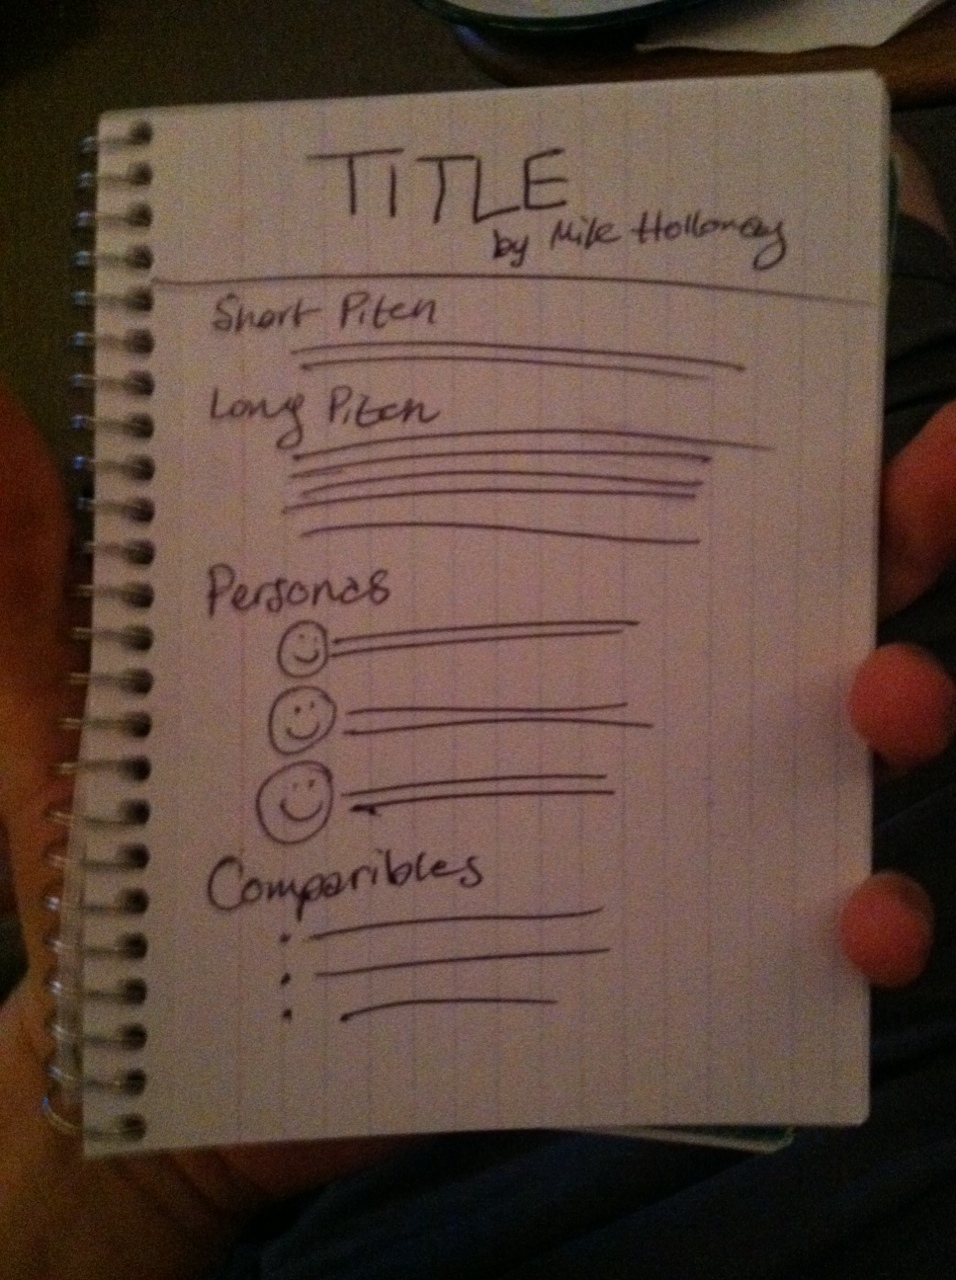 TITLE
by Mike Holloway
Short Pitch
Long Pitch
Personas
Comparibles